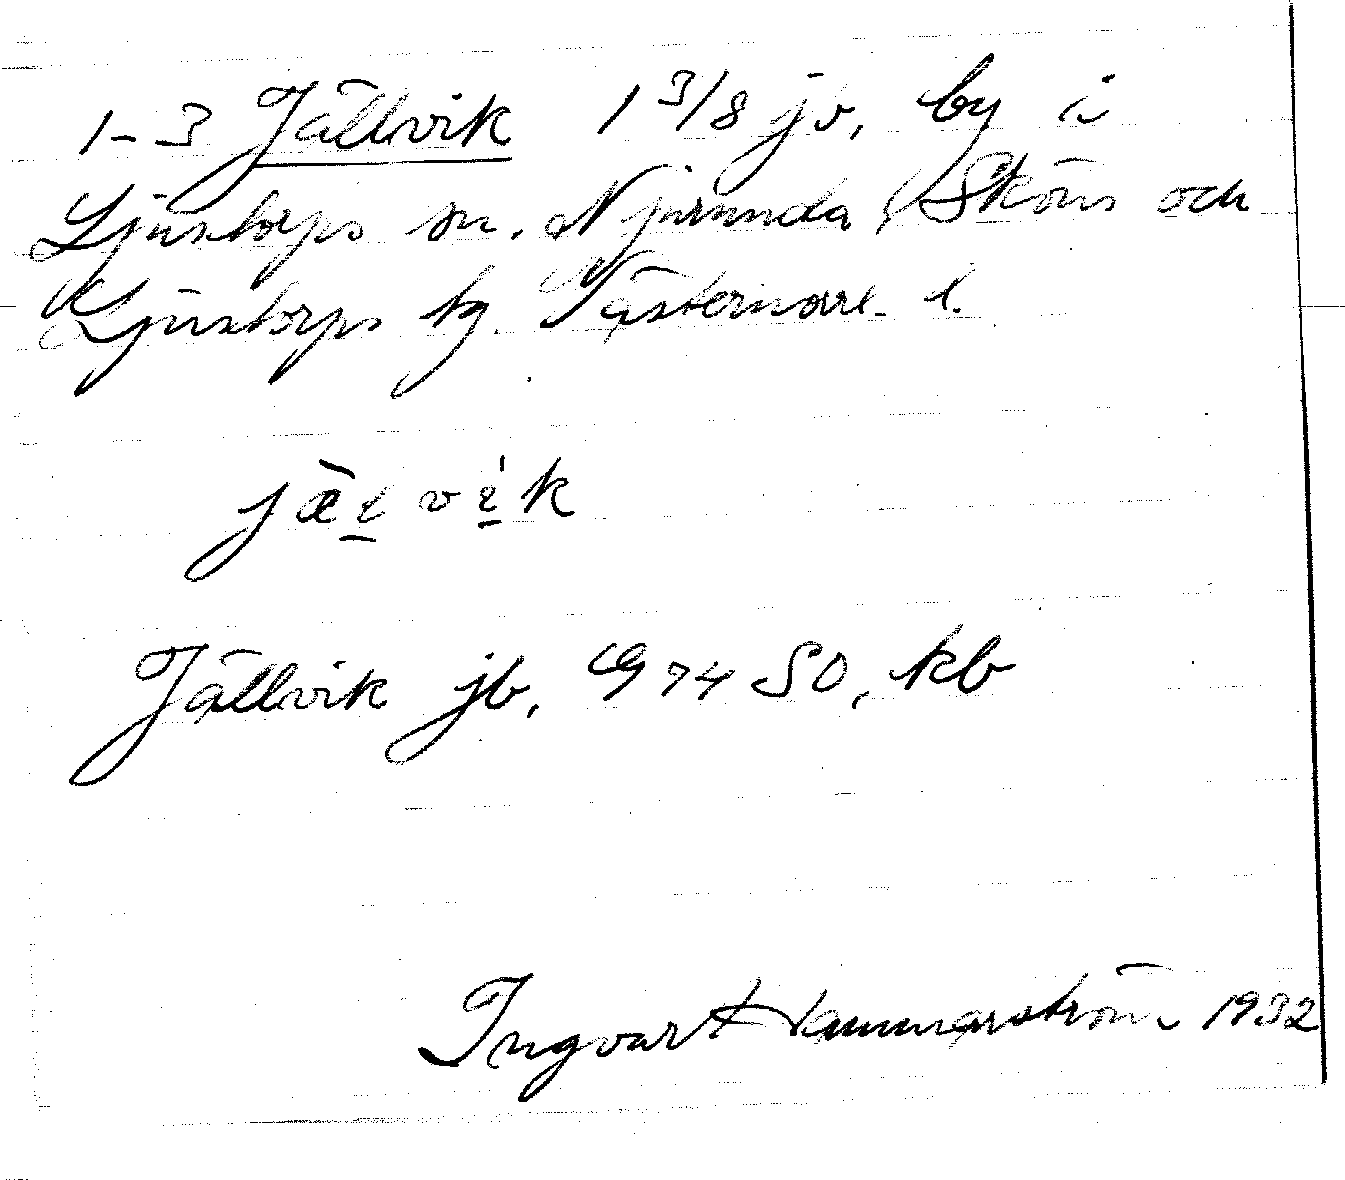 1-3 Jällvik 1 3/8 jv, by i
Ljustorps sn. Njurunda, Sköns och
Ljustorps tg. Västernorrl. l.
Jällvik jb, G 74 SO, kb
Ingvar Hammarström 1932